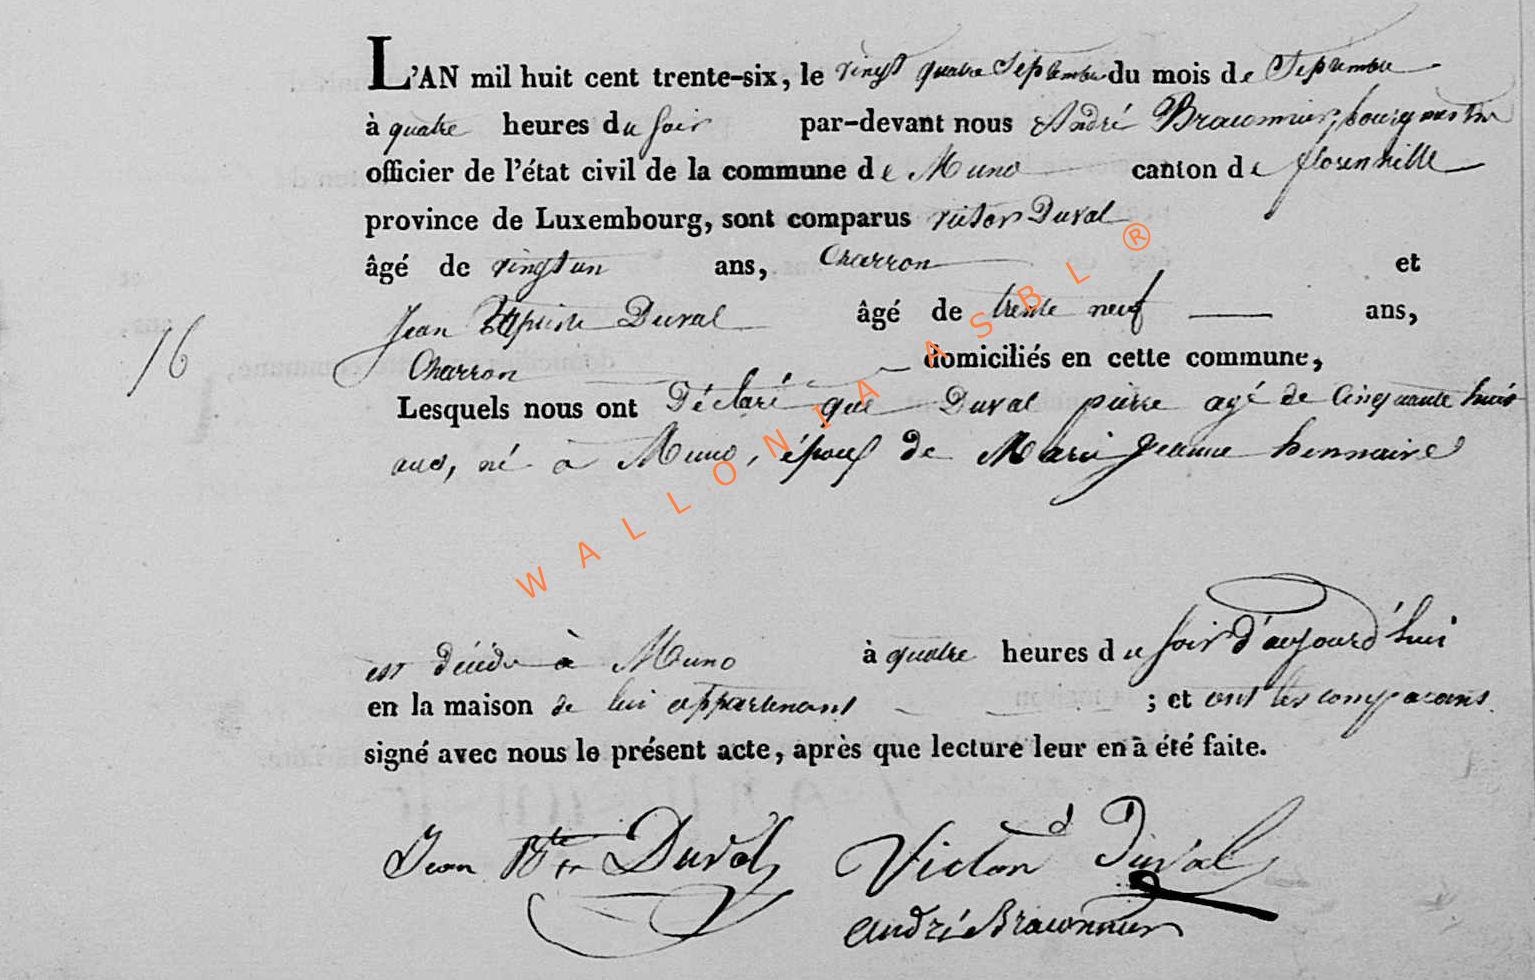 L'AN mil huit cent trente-six, le vingt quatre Septembre du mois de Septembre
à quatre heures du soir par-devant nous André Braconnier, bourgmestre
officier de l'état civil de la commune de Muno canton de florenville
province de Luxembourg, sont comparus victor Duval
âgé de vingt un ans, Charron et
Jean Baptiste Duval âgé de trente neuf ans,
16
Charron domiciliés en cette commune,
Lesquels nous ont Déclaré que Duval pierre agé de Cinquante huit
ans, né à Muno, époux de Marie Jeanne hennaire
est décédé à Muno à quatre heures du soir d'aujourd'hui
en la maison de lui appartenant ; et ont les comparans
signé avec nous le présent acte, après que lecture leur en a été faite.
Jean Bte Duval Victor Duval
André Braconnier
WALLONIA ASBL ®